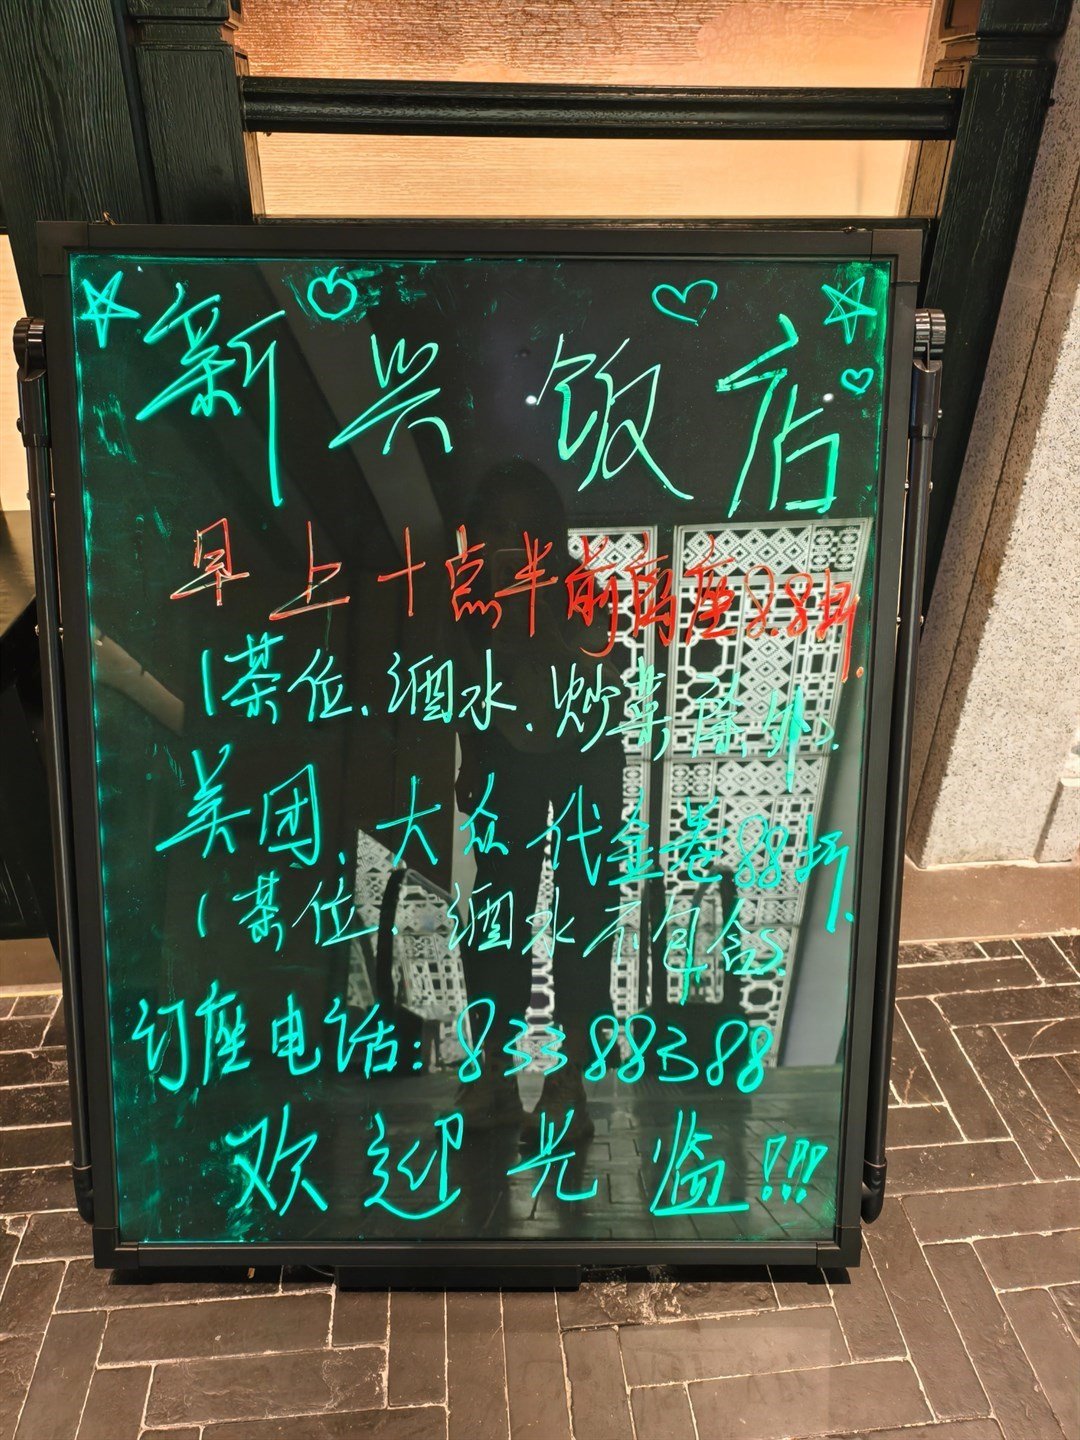 新兴饭店
早上十点半前离座8.8折.
(茶位、酒水、炒菜除外.
美团、大众代金卷88折.
(茶位、酒水不包含.
订座电话:83388388
欢迎光临!!!